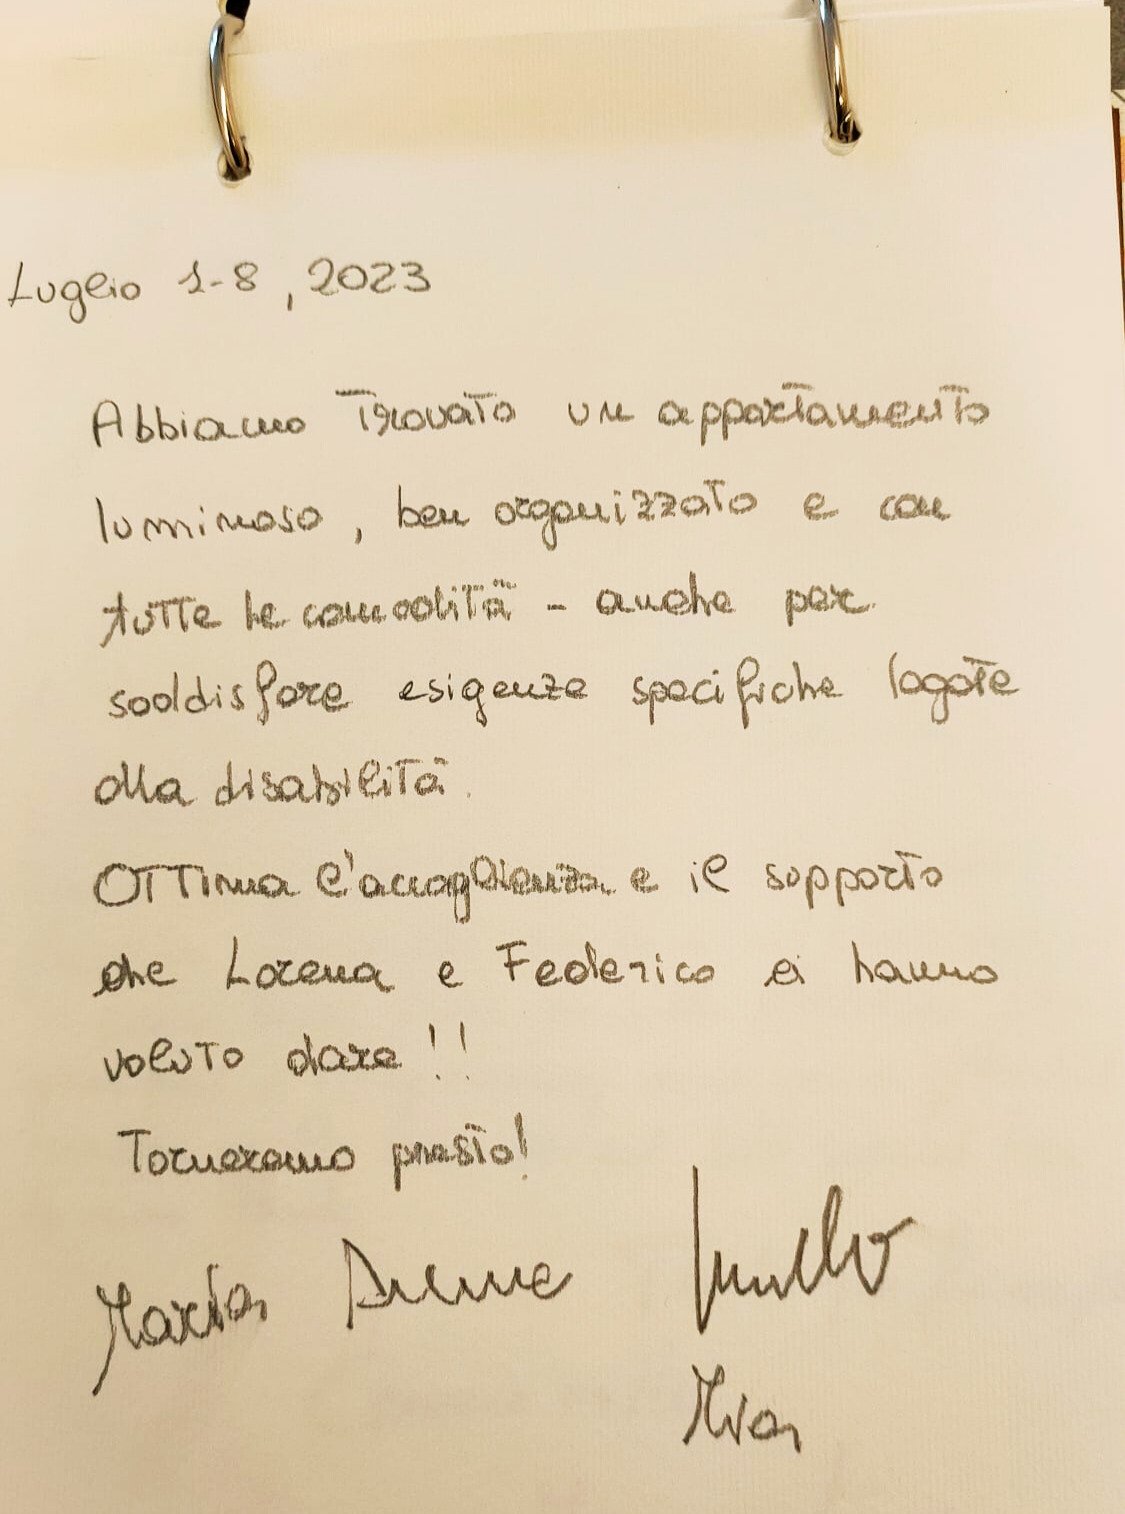 Luglio 1-8, 2023
Abbiamo Trovato un appartamento
luminoso, ben organizzato e con
tutte le comodità - anche per
soddisfare esigenze specifiche legate
alla disabilità.
Ottima l'accoglienza e il supporto
che Lorena e Federico ci hanno
voluto dare!!
Torneremo presto!
Maria Anna